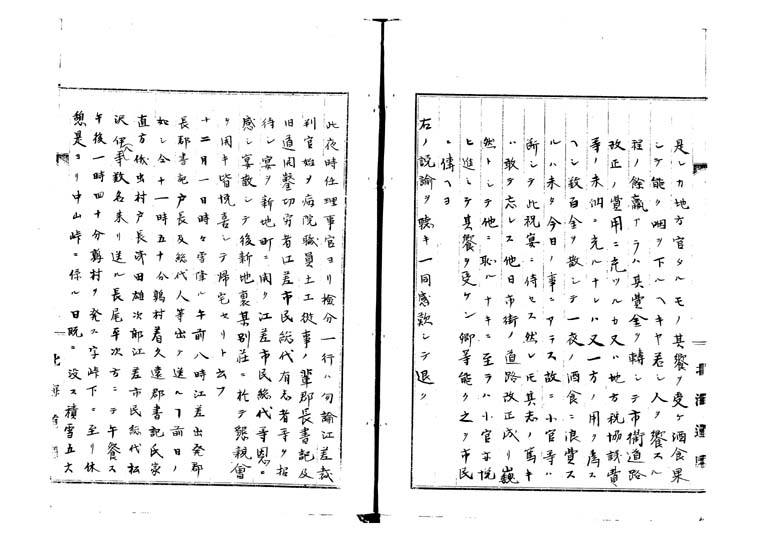 是レカ地方官タルモノ其饗ヲ受ケ酒食果
シテ能ク咽ヲ下ルヘキヤ若シ人ヲ饗スル
程ノ餘贏アラハ其貲金ヲ轉シテ市街道路
改正ノ費用ニ充ツルカ又ハ地方税協議費
等ノ未納ニ充ルナレハ又一方ノ用ヲ為ス
ヘシ数百金ヲ散シテ一夜ノ酒食ニ浪費ス
ルハ未タ今日ノ事ニアラス故ニ小官等ハ
断シテ此祝宴ニ侍セス然レ𪜈其志ノ篤キ
ハ敢テ忘レス他日市街ノ道路改正成リ巍
然トシテ他ニ恥ルナキニ至ラハ小官亦悦
ヒ進ミテ其饗ヲ受ケン卿等能ク之ヲ市民
ニ傳ヘヨ
右ノ説諭ヲ聴キ一同感歎シテ退ク
此夜時任理事官ヨリ検分一行ハ勿論江差裁
判官始メ病院職員土工從事ノ輩郡長書記及
旧道開鑿功労者江差市民総代有志者等ヲ招
待シ宴ヲ新地町ニ開ク江差市民総代等恩ニ
感シ享散シテ後新地裏某別荘ニ於テ懇親會
ヲ開キ皆悦喜シテ帰宅セリト云フ
十二月一日時々雪降ル午前八時江差出発郡
長郡書記戸長及総代人等出テ送ル𠃍前日ノ
如シ仝十一時五十分鶉村着久遠郡書記氏家
直方俄虫村戸長済田雄次郎江差市民総代松
沢伊八事数名来リ送ル長尾平次方ニテ午餐ス
午後一時四十分鶉村ヲ発ス字峠下ニ至リ休
憩是ヨリ中山峠ニ係ル日既ニ没ス積雪五六